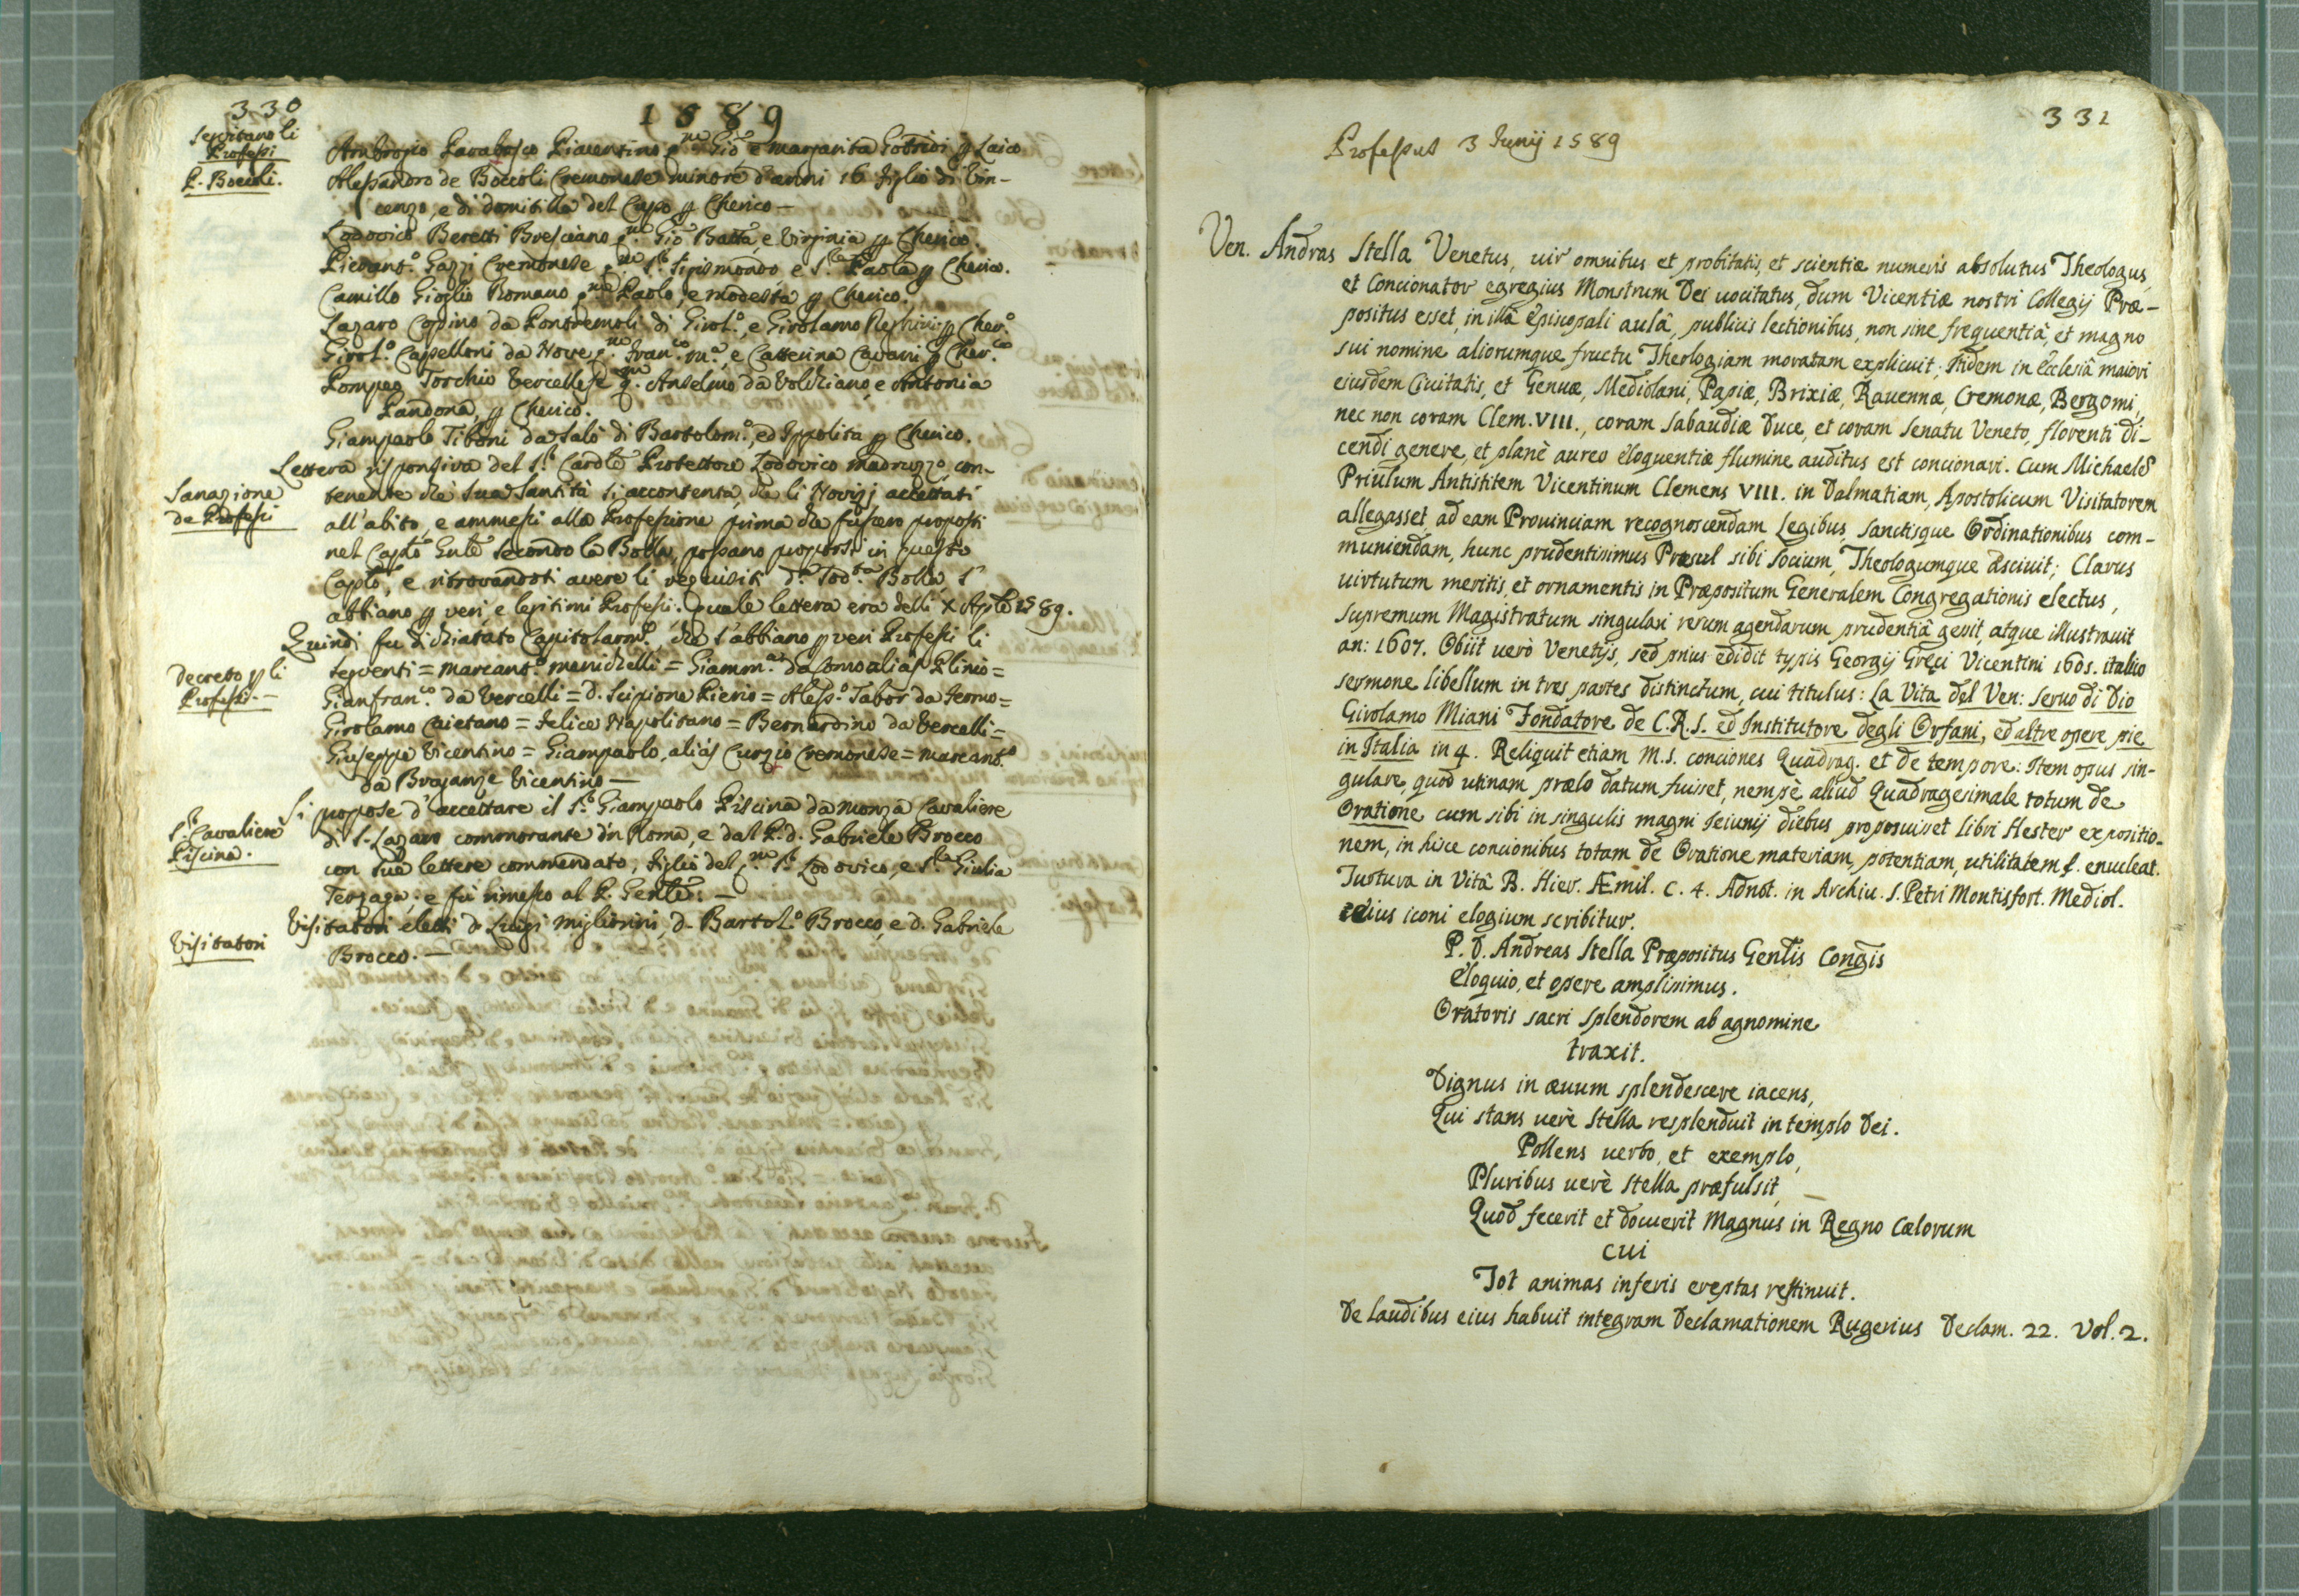 330
1589
Seguitano li
Professi
P. Boccoli.
Ambrogio Parabosco Piacentino q.m Gio e Margarita Gobrini p Laico
Alessandro de Boccoli Cremonese minore d'anni 16 figlio di Vin-
cenzo, e di domitilla del Capo p Cherico —
Lodovico Beretti Bresciano q.m Gio Batta, e Virginia p Cherico.
Pierant.o Gazzi Cremonese q.m S.r Sigismondo e S.ra Paola p Cherico.
Camillo Gioglio Romano q.m Paolo, e modesta p Cherico.
Lazaro Copino da Pontremoli di Girol.o, e Girolama p Cher.o
Girol.o Cappelloni da Nove q.m Fran.co m.a, e Catterina Cavani p Cher.co
Pompeo Torchio Vercellese q.m Anselmo da Voldiano, e Antonia
Pandona, p Cherico.
Giampaolo Tiboni da Salò di Bartolom.o, ed Ippolita p Cherico.
Lettera risponsiva del S.r Cardle Protettore Lodovico Madruzzo, con-
Sanazione
de Professi
tenente che Sua Santità si accontenta, che li Novizj accettati
all'abito, e ammessi alla Professione prima che fussero proposti
nel Caplo Gnle secondo la Bolla, possano proporsi in questo
Caplo, e ritrovandosi avere li requisiti d.a Sod.ta Bolla, s'
abbiano p veri, e legitimi Professi. quale lettera era delli X Aple 1589.
Quindi fu dichiarato Capitolarm.e, che s'abbiano p veri Professi li
Decreto p li
Professi. —
seguenti = Marcant.o Menichelli = Giamm.a da Como aliàs Plinio =
Gianfran.co da Vercelli = D. Scipione Pierio = Aless.o Tabor da Fermo =
Girolamo Caietano = Felice Napolitano = Bernardino da Vercelli =
Giuseppe Vicentino = Giampaolo, aliàs Curzio Cremonese = Marcant.o
da Braganze Vicentino —
Si propose d'accettare il S.r Giampaolo Piscina da Monza Cavaliere
S.r Cavaliere
Piscina.
di S. Lazaro commorante in Roma, e dal P. d. Gabriele Brocco
con sue lettere commendato, figlio del q.m S.r Lodovico, e S.ra Giulia
Terzaga; e fù rimesso al P. Genle: —
Visitatori eletti D. Luigi Migliorini, D. Bartol.o Brocco, e D. Gabriele
Visitatori
Brocco. —
331
Professus 3 Junij 1589
Ven. Andras Stella Venetus, uir omnibus et probitatis, et scientiæ numeris absolutus Theologus,
et Concionator egregius Monstrum Dei uocitatus, dum Vicentiæ nostri Collegij Præ-
positus esset, in illâ Episcopali aulâ, publicis lectionibus, non sine frequentiâ, et magno
sui nomine aliorumque fructu Theologiam moratam explicuit; Itidem in Ecclesiâ maiori
eiusdem Ciuitatis, et Genuæ, Mediolani, Papiæ, Brixiæ, Rauennæ, Cremonæ, Bergomi,
nec non coram Clem. VIII., coram Sabaudiæ Duce, et coram Senatu Veneto, florenti di-
cendi genere, et planè aureo eloquentiæ flumine auditus est concionari. Cum Michaelē
Priulum Antistitem Vicentinum Clemens VIII. in Dalmatiam, Apostolicum Visitatorem
allegasset, ad eam Prouinciam recognoscendam Legibus, sanctisque Ordinationibus com-
muniendam, hunc prudentissimus Præsul sibi Socium, Theologumque asciuit; Clarus
uirtutum meritis, et ornamentis in Præpositum Generalem Congregationis electus,
supremum Magistratum singulari rerum agendarum prudentiâ gessit, atque illustrauit
an: 1607. Obiit uerò Venetijs, sed prius edidit typis Georgij Greci Vicentini 1605. italico
sermone libellum in tres partes distinctum, cui titulus: La Vita del Ven: Seruo di Dio
Girolamo Miani Fondatore de C.R.S. ed Institutore degli Orfani, ed altre opere pie
in Italia in 4. Reliquit etiam M.S. conciones Quadrag. et de tempore: Item opus sin-
gulare, quod utinam prælo datum fuisset, nempè aliud Quadragesimale totum de
Oratione cum sibi in singulis magni Jeiunij diebus proposuisset Libri Hester expositio-
nem, in hisce concionibus totam de Oratione materiam, potentiam, utilitatem f. enucleat.
Turtura in Vitâ B. Hier. Æmil. C. 4. Adnot. in Archiu. S. Petri Montisfort. Mediol.
eius iconi elogium scribitur.
P. D. Andreas Stella Præpositus Genlis Congis
Eloquio, et opere amplissimus.
Oratoris sacri splendorem ab agnomine
traxit.
Dignus in æuum splendescere iacens,
Qui stans uerè Stella resplenduit in templo Dei.
Pollens uerbo, et exemplo,
Pluribus uerè Stella præfulsit,
Quod fecerit et docuerit Magnus in Regno Cælorum
cui
Tot animas inferis ereptas restituit.
De laudibus eius habuit integram Declamationem Rugerius Declam. 22. Vol. 2.